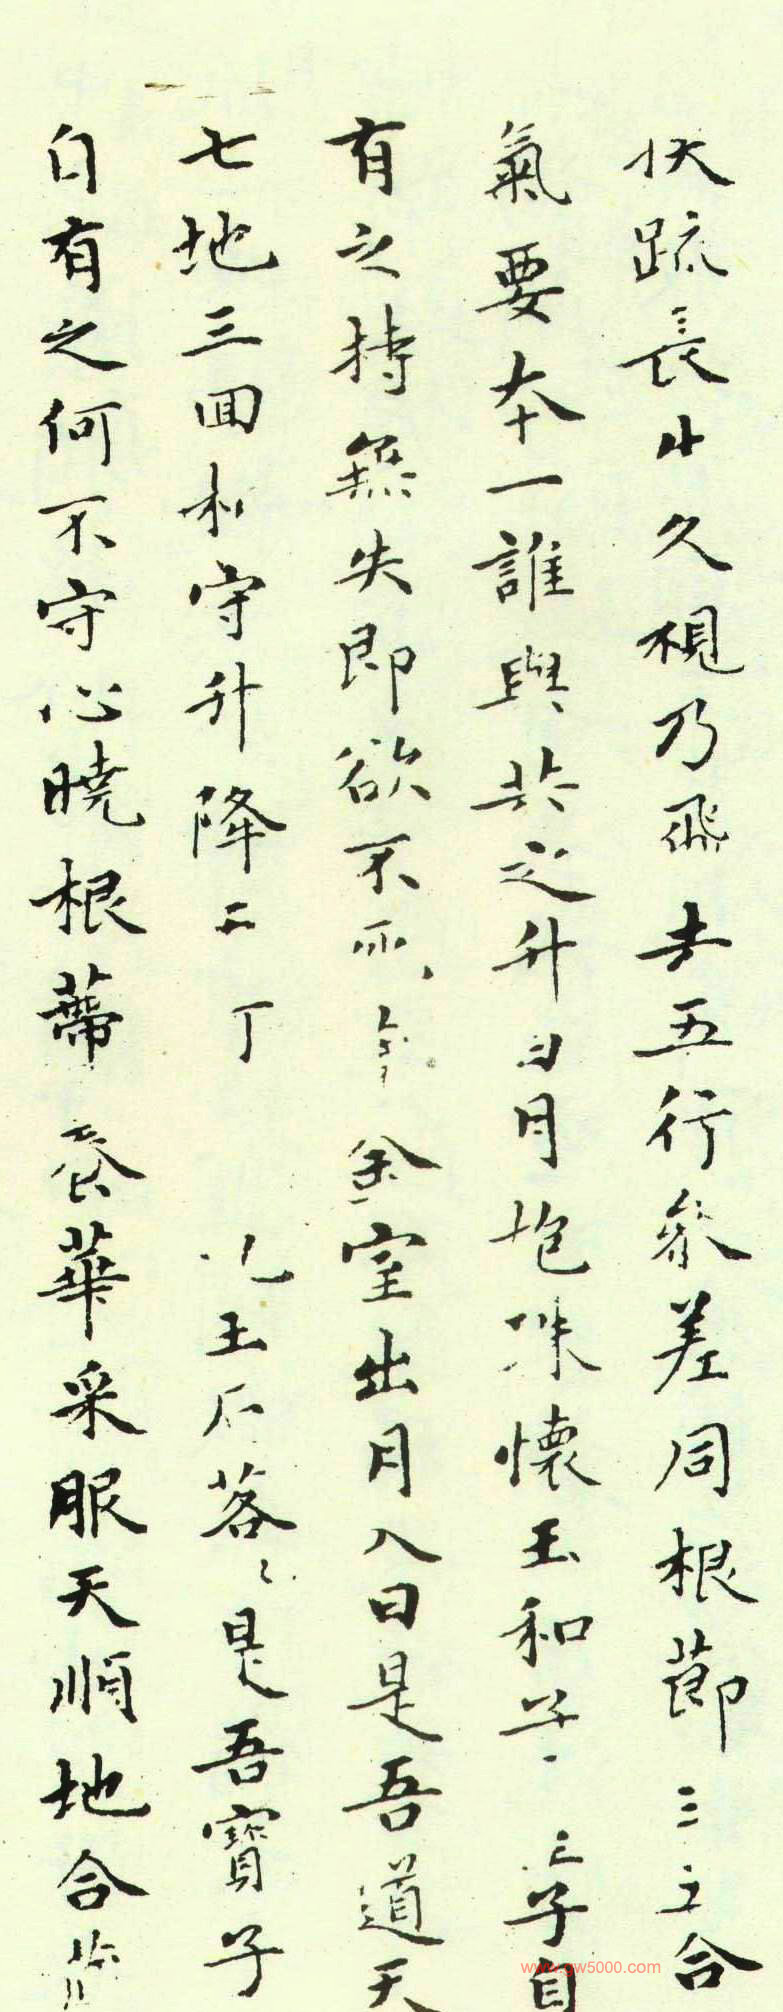 伏踈長生久視乃飛去五行參差同根莭三五合
氣要本一誰與共之升日月抱珠懷玉和子 子自
有之持無失即欲不 金室出月入日是吾道天
七地三回相守升降 丁 玉石落〻是吾寶子
自有之何不守心曉根蒂養華采服天順地合
www.gw5000.com